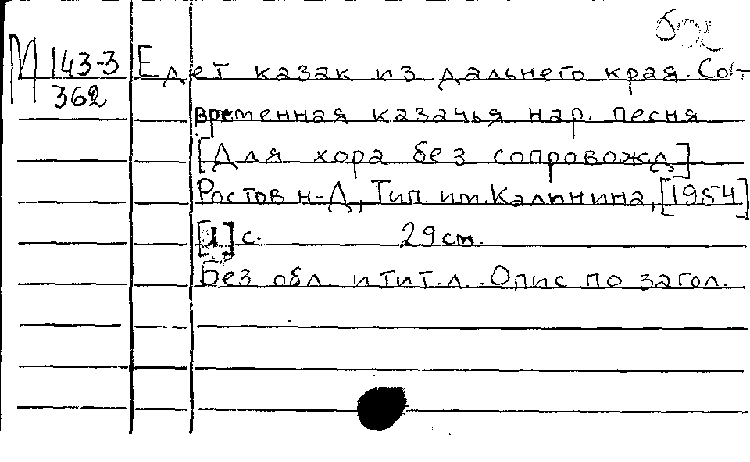 М 143-3
362
Едет казак из дальнего края. Сов-
временная казачья нар. песня
[Для хора без сопровожд.]
Ростов н-Д, Тип им. Калинина, [1954]
[1] с. 29 см.
Без обл. и тит. л. Опис по загол.